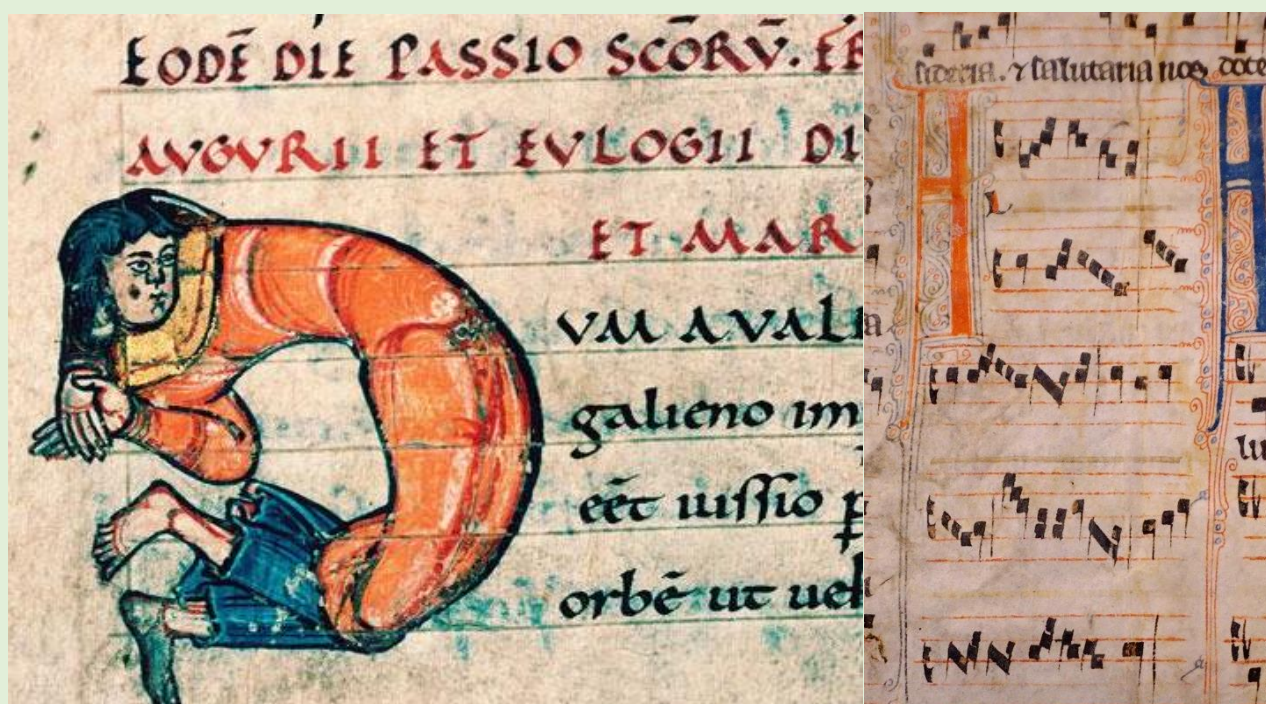 EODĒ DIE PASSIO SCŌRŪ. FR
AVGVRII ET EVLOGII DI
ET MAR
VM AVALE
galieno im
eēt iussio p
orbē ut uel
sideria. & salutaria nos doce